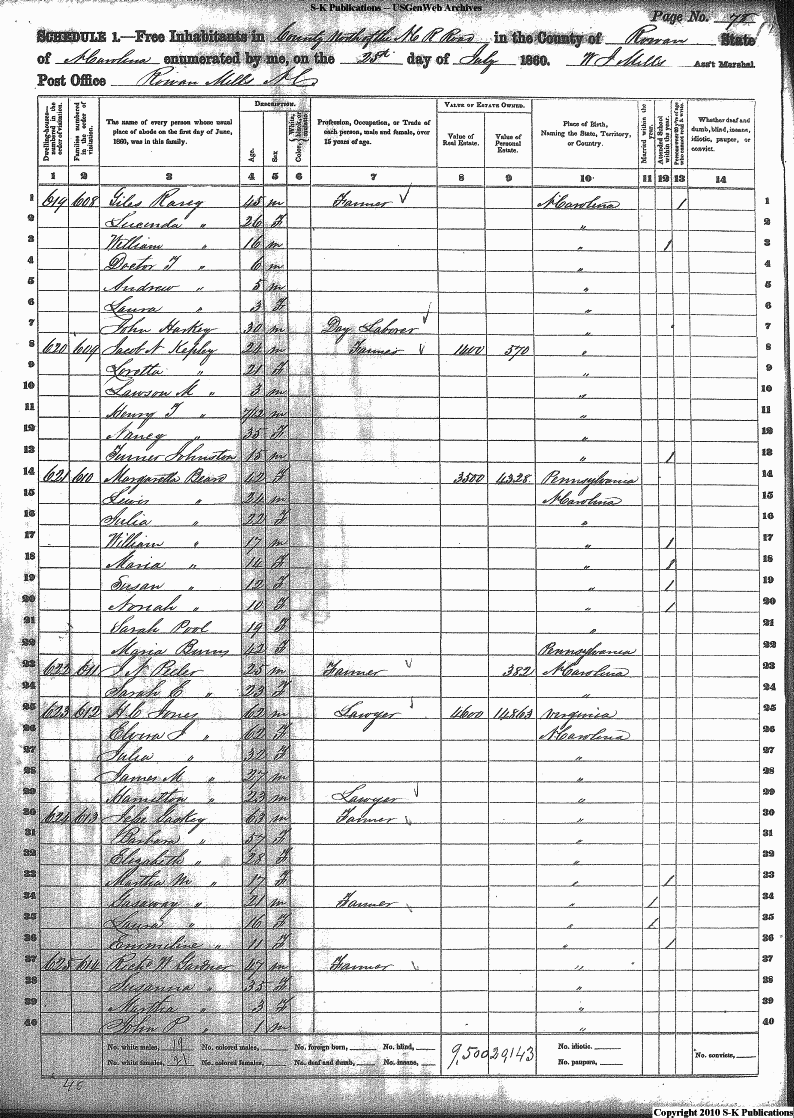 S-K Publications -- USGenWeb Archives
Page No. 78
SCHEDULE 1.—Free Inhabitants in County North of the N C R Road in the County of Rowan State
of N Carolina enumerated by me, on the 25th day of July 1860. W J Mills Ass't Marshal.
Post Office Rowan Mills N C
Dwelling-house—numbered in the order of visitation.
Families numbered in the order of visitation.
The name of every person whose usual place of abode on the first day of June, 1860, was in this family.
DESCRIPTION.
Age.
Sex
Color, White, black, or mulatto
Profession, Occupation, or Trade of each person, male and female, over 15 years of age.
VALUE OF ESTATE OWNED.
Value of Real Estate.
Value of Personal Estate.
Place of Birth, Naming the State, Territory, or Country.
Married within the year.
Attended School within the year.
Persons over 20 y'rs of age who cannot read & write.
Whether deaf and dumb, blind, insane, idiotic, pauper, or convict.
1 2 3 4 5 6 7 8 9 10 11 12 13 14
1 619 608 Giles 45 m Farmer N Carolina 1 1
2 Lucinda " 26 F " 2
3 William " 16 m " 1 3
4 Doctor T " 6 m " 4
5 Andrew " 5 m " 5
6 Laura " 3 F " 6
7 John Harkey 30 m Day Laborer " 7
8 620 609 Jacob N Kepley 24 m Farmer 1400 570 " 8
9 Loretta " 21 F " 9
10 Lawson M " 3 m " 10
11 Henry T " 7/12 m " 11
12 Nancy " 35 F " 12
13 Turner Johnston 15 m " 1 13
14 621 610 Margaretta Beard 42 F 3500 4328 Pennsylvania 14
15 Lewis " 24 m N Carolina 15
16 Julia " 22 F " 16
17 William " 17 m " 1 17
18 Maria " 14 F " 18
19 Susan " 12 F " 1 19
20 Noriah " 10 F " 1 20
21 Sarah Pool 19 F " 21
22 Maria Burns 42 F Pennsylvania 22
23 622 611 J N Peeler 25 m Farmer 382 N Carolina 23
24 Sarah C " 23 F " 24
25 623 612 H C Jones 62 m Lawyer 4600 14863 Virginia 25
26 Elvira J " 62 F N Carolina 26
27 Julia " 32 F " 27
28 James M " 27 m " 28
29 Hamilton " 23 m Lawyer " 29
30 624 613 63 m Farmer " 30
31 Barbara " 57 F " 31
32 Elizabeth " 28 F " 32
33 Martha M " 17 F " 1 33
34 Gasaway " 21 m Farmer " 1 34
35 Laura " 16 F " 1 35
36 Emmeline " 11 F " 1 36
37 625 614 Richd W Gardner 47 m Farmer " 37
38 Susanna " 35 F " 38
39 Martha " 3 F " 39
40 John P " 1 m " 40
No. white males, 19 No. colored males, No. foreign born, No. blind, 9,500 29143 No. idiotic, No. convicts,
No. white females, 21 No. colored females, No. deaf and dumb, No. insane, No. paupers,
40
Copyright 2010 S-K Publications